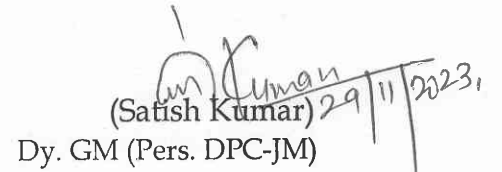 Kumar 29/11/2023,
(Satish Kumar)
Dy. GM (Pers. DPC-JM)